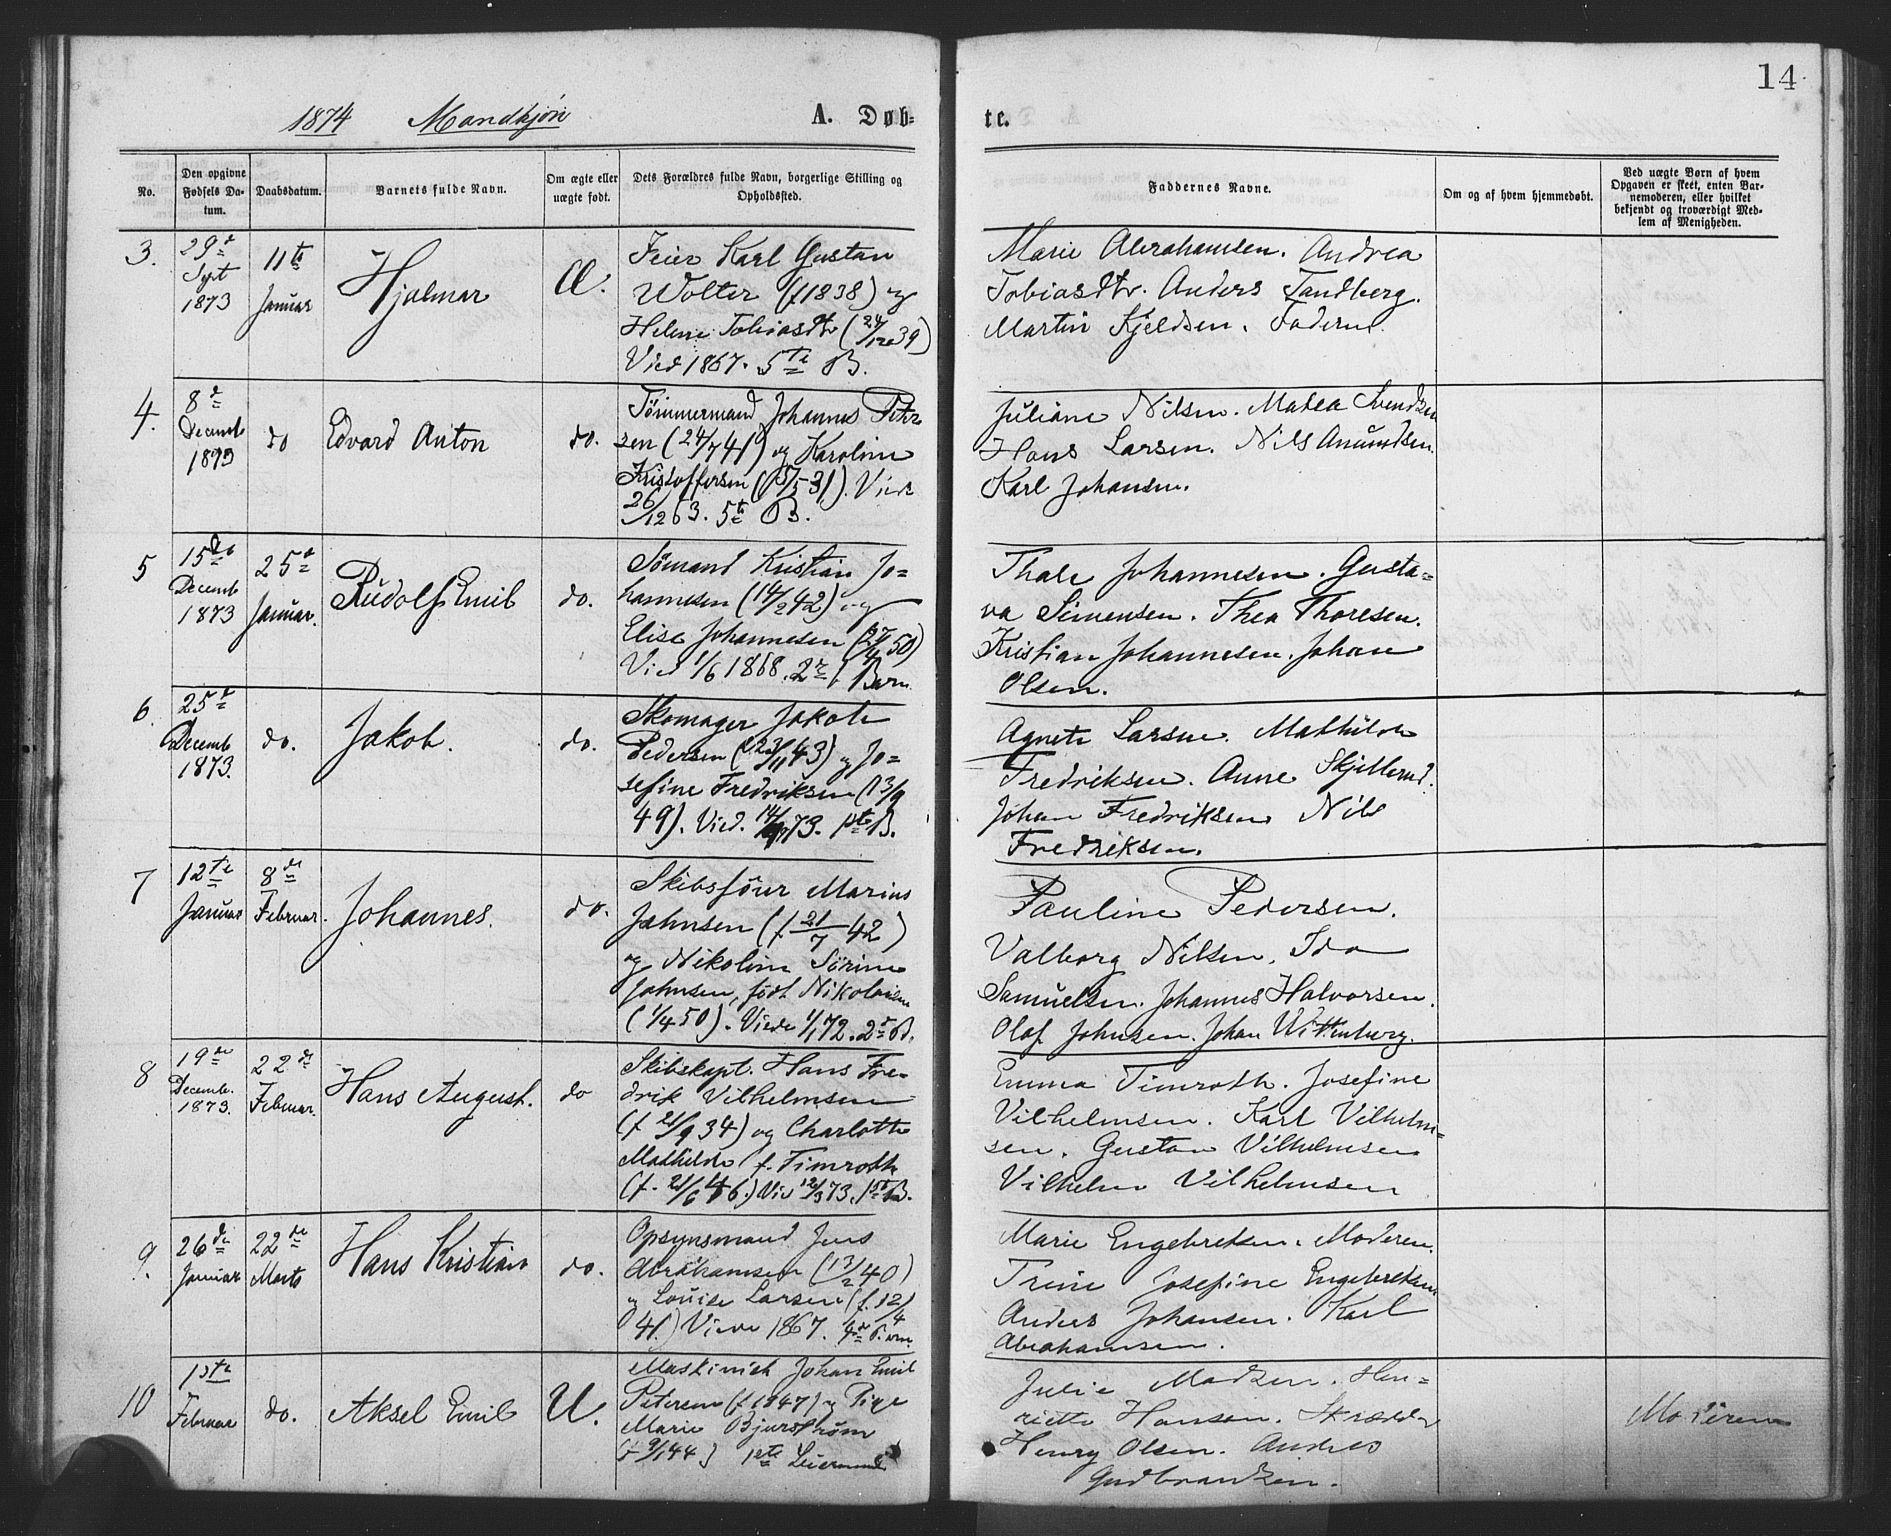 14
1874 Mandkjøn A. Døb- te.
No.
Den opgivne
Fødsels Da-
tum.
Daabsdatum.
Barnets fulde Navn.
Om ægte eller
uægte født.
Dets Forældres fulde Navn, borgerlige Stilling og
Opholdssted.
Faddernes Navne.
Om og af hvem hjemmedøbt.
Ved uægte Børn af hvem
Opgaven er skeet, enten Bar-
nemoderen, eller hvilket
bekjendt og troværdigt Med-
lem af Menigheden.
3.
29de
Sept
1873
11te
Januar
Hjalmar
Æ.
Feier Karl Gustav
Wolter (f 1838) og
Helene Tobiasdtr (24/12 39)
Vied 1867. 5te B.
Marie Abrahamsen. Andrea
Tobiasdtr. Anders Tandberg.
Martin Kjeldsen. Faderen.
4.
8de
Decemb
1873
do
Edvard Anton
do.
Tømmermand Johannes Peter
sen (24/7 41) og Karoline
Kristoffersen (/5 31). Viede
26/12 63. 5te B.
Juliane Nilsen. Mathea Svendsen
Hans Larsen. Nils Amundsen.
Karl Johansen.
5
15de
Decemb
1873
25de
Januar.
Rudolf Emil
do.
Sømand Kristian Jo=
hannesen (14/2 42) og
Elise Johannesen (27/4 50)
Vied 1/6 1868. 2det Barn
Thale Johannesen. Gusta=
va Simensen. Thea Thoresen.
Kristian Johannesen. Johan
Olsen.
6.
25de
Decemb
1873.
do.
Jakob.
do.
Skomager Jakob
Pedersen (23/11 43) og Jo=
sefine Fredriksen (13/9
49). Vied. 73. 1ste B.
Agnete Larsen. Mathilde
Fredriksen. Anne Skjellerud.
Johan Fredriksen Nils
Fredriksen.
7
12te
Januar
8de
Februar.
Johannes.
do.
Skibsfører Marius
Johnsen (f 21/7 42)
og Nikoline Sørine
Johnsen, født Nikolaisen
(1/4 50). Viede 1/1 72. 2det B.
Pauline Pedersen.
Valborg Nilsen. Ida
Samuelsen. Johannes Halvorsen.
Olaf Johnsen. Johan Wittenberg.
8
19de
Decemb.
1873.
22de
Februar.
Hans August.
do
Skibskapt. Hans Fre-
drik Vilhelmsen
(f 21/9 34) og Charlotte
Mathilde f. Timroth
(f. 21/6 46.) Vied 12/3 73. 1ste B.
Emma Timroth. Josefine
Vilhelmsen. Karl Vilhelm=
sen. Gustav Vilhelmsen
Vilhelm Vilhelmsen
9.
26de
Januar
22de
Marts
Hans Kristian
do.
Opsynsmand Jens
Abrahamsen (13/2 40)
og Louise Larsen (f. 12/4
41.) Viede 1867. 4de Barn
Marie Engebretsen. Moderen.
Trine Josefine Engebretsen
Anders Johansen. Karl
Abrahamsen.
10
Februar
do.
Aksel Emil
U.
Maskinist Johan Emil
Petersen (f 1847) og Pige
Marie Bjurstrøm
(f 9/1 44) 1ste Leiermaal
Julie Madsen. Hen=
riette Hansen. Skrædder
Henry Olsen. Anders
Gudbrandsen.
Moderen